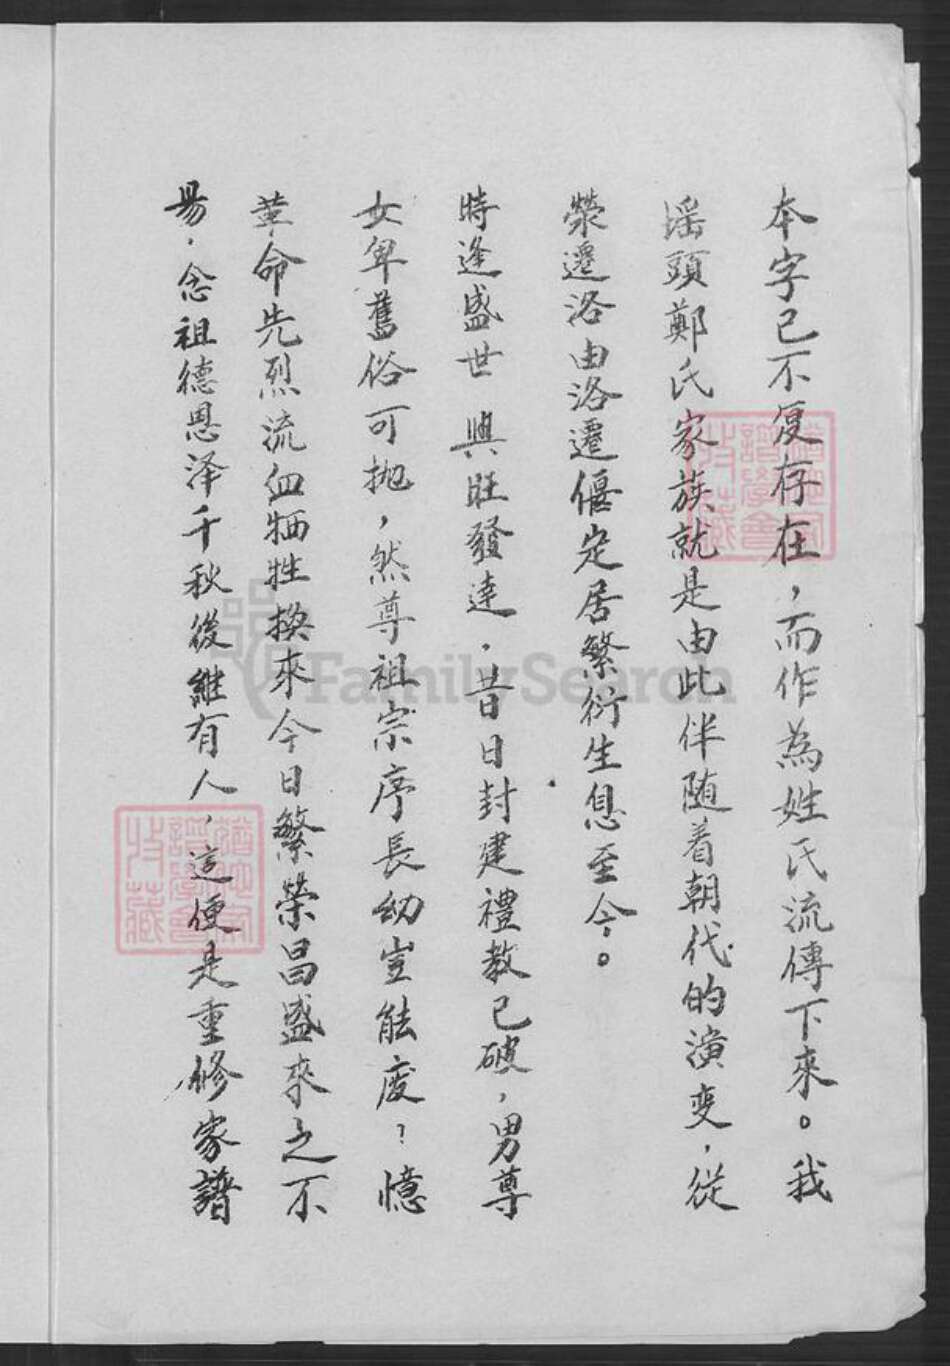 本字已不復存在，而作為姓氏流傳下來。我
瑶頭鄭氏家族就是由此伴随着朝代的演变，從
滎遷洛由洛遷偃定居繁衍生息至今。
時逢盛世 興旺發達，昔日封建禮教已破，男尊
女卑舊俗可抛，然尊祖宗序長幼豈能废？憶
革命先烈流血牺牲换來今日繁荣昌盛來之不
易，念祖德恩泽千秋後继有人，這便是重修家譜
譜學會
收藏
譜學會
收藏
FamilySearch